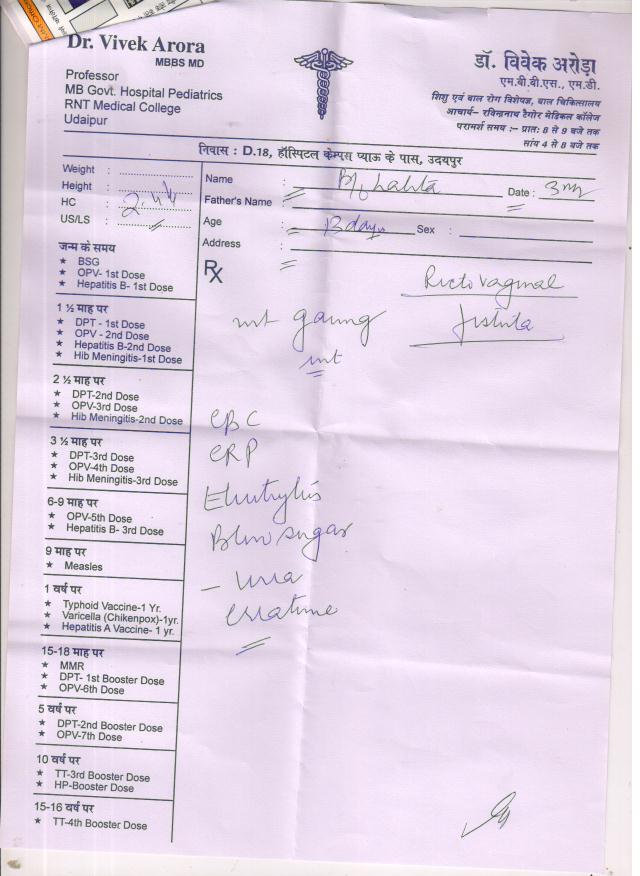 Dr. Vivek Arora
MBBS MD
Professor
MB Govt. Hospital Pediatrics
RNT Medical College
Udaipur
डॉ. विवेक अरोड़ा
एम.बी.बी.एस., एम.डी.
शिशु एवं बाल रोग विशेषज्ञ, बाल चिकित्सालय
आचार्य– रविन्द्रनाथ टैगोर मेडिकल कॉलेज
परामर्श समय :– प्रातः 8 से 9 बजे तक
सांय 4 से 8 बजे तक
निवास : D.18, हॉस्पिटल केम्पस प्याऊ के पास, उदयपुर
Weight :
Height :
HC : 2.44
US/LS :
Name : B/o Lalita Date :
Father's Name :
Age : 13 days Sex :
Address :
जन्म के समय
★ BSG
★ OPV- 1st Dose
★ Hepatitis B- 1st Dose
1 ½ माह पर
★ DPT - 1st Dose
★ OPV - 2nd Dose
★ Hepatitis B-2nd Dose
★ Hib Meningitis-1st Dose
2 ½ माह पर
★ DPT-2nd Dose
★ OPV-3rd Dose
★ Hib Meningitis-2nd Dose
3 ½ माह पर
★ DPT-3rd Dose
★ OPV-4th Dose
★ Hib Meningitis-3rd Dose
6-9 माह पर
★ OPV-5th Dose
★ Hepatitis B- 3rd Dose
9 माह पर
★ Measles
1 वर्ष पर
★ Typhoid Vaccine-1 Yr.
★ Varicella (Chikenpox)-1yr.
★ Hepatitis A Vaccine- 1 yr.
15-18 माह पर
★ MMR
★ DPT- 1st Booster Dose
★ OPV-6th Dose
5 वर्ष पर
★ DPT-2nd Booster Dose
★ OPV-7th Dose
10 वर्ष पर
★ TT-3rd Booster Dose
★ HP-Booster Dose
15-16 वर्ष पर
★ TT-4th Booster Dose
Rx
Rectovaginal
fistula
wt
CBC
CRP
Electrolytes
Blood sugar
– Urea
Creatinine